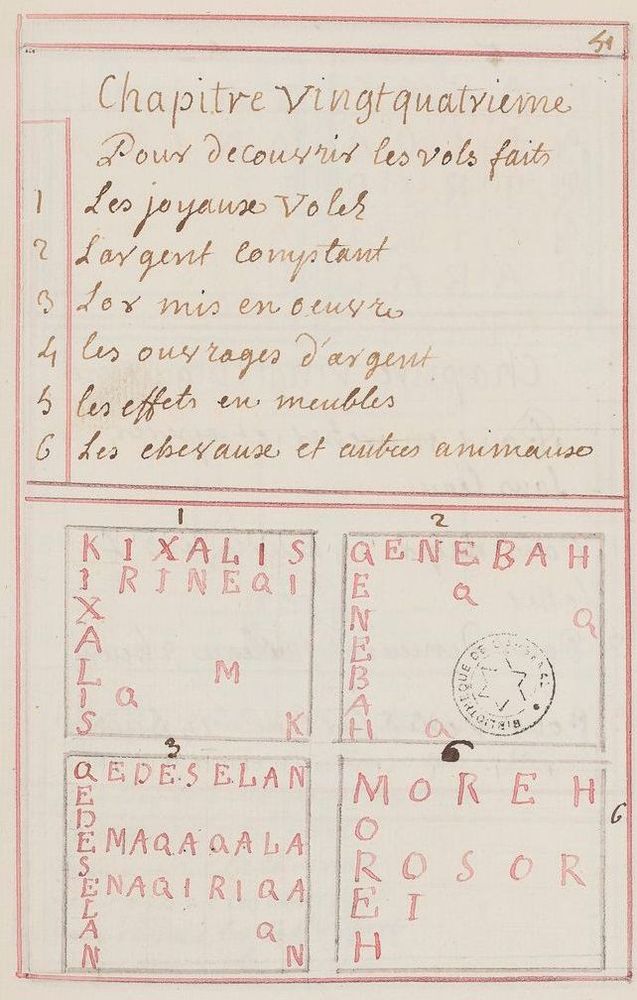 51
Chapitre Vingtquatrieme
Pour decouvrir les vols faits
1 Les joyaux Volez
2 Largent Comptant
3 Lor mis en oeuvre
4 les ouvrages d'argent
5 les effets en meubles
6 Les chevaux et autres animaux
1
K I X A L I S
I R I N E Q I
X
A
L M
I Q
S K
2
Q E N E B A H
E Q
N Q
E
B
A
H Q
BIBLIOTHEQUE DE
3
Q E D E S E L A N
E
D
E M A Q A Q A L A
S
E N A Q I R I Q A
L
A Q
N N
6
M O R E H
O
R O S O R
E I
H
6